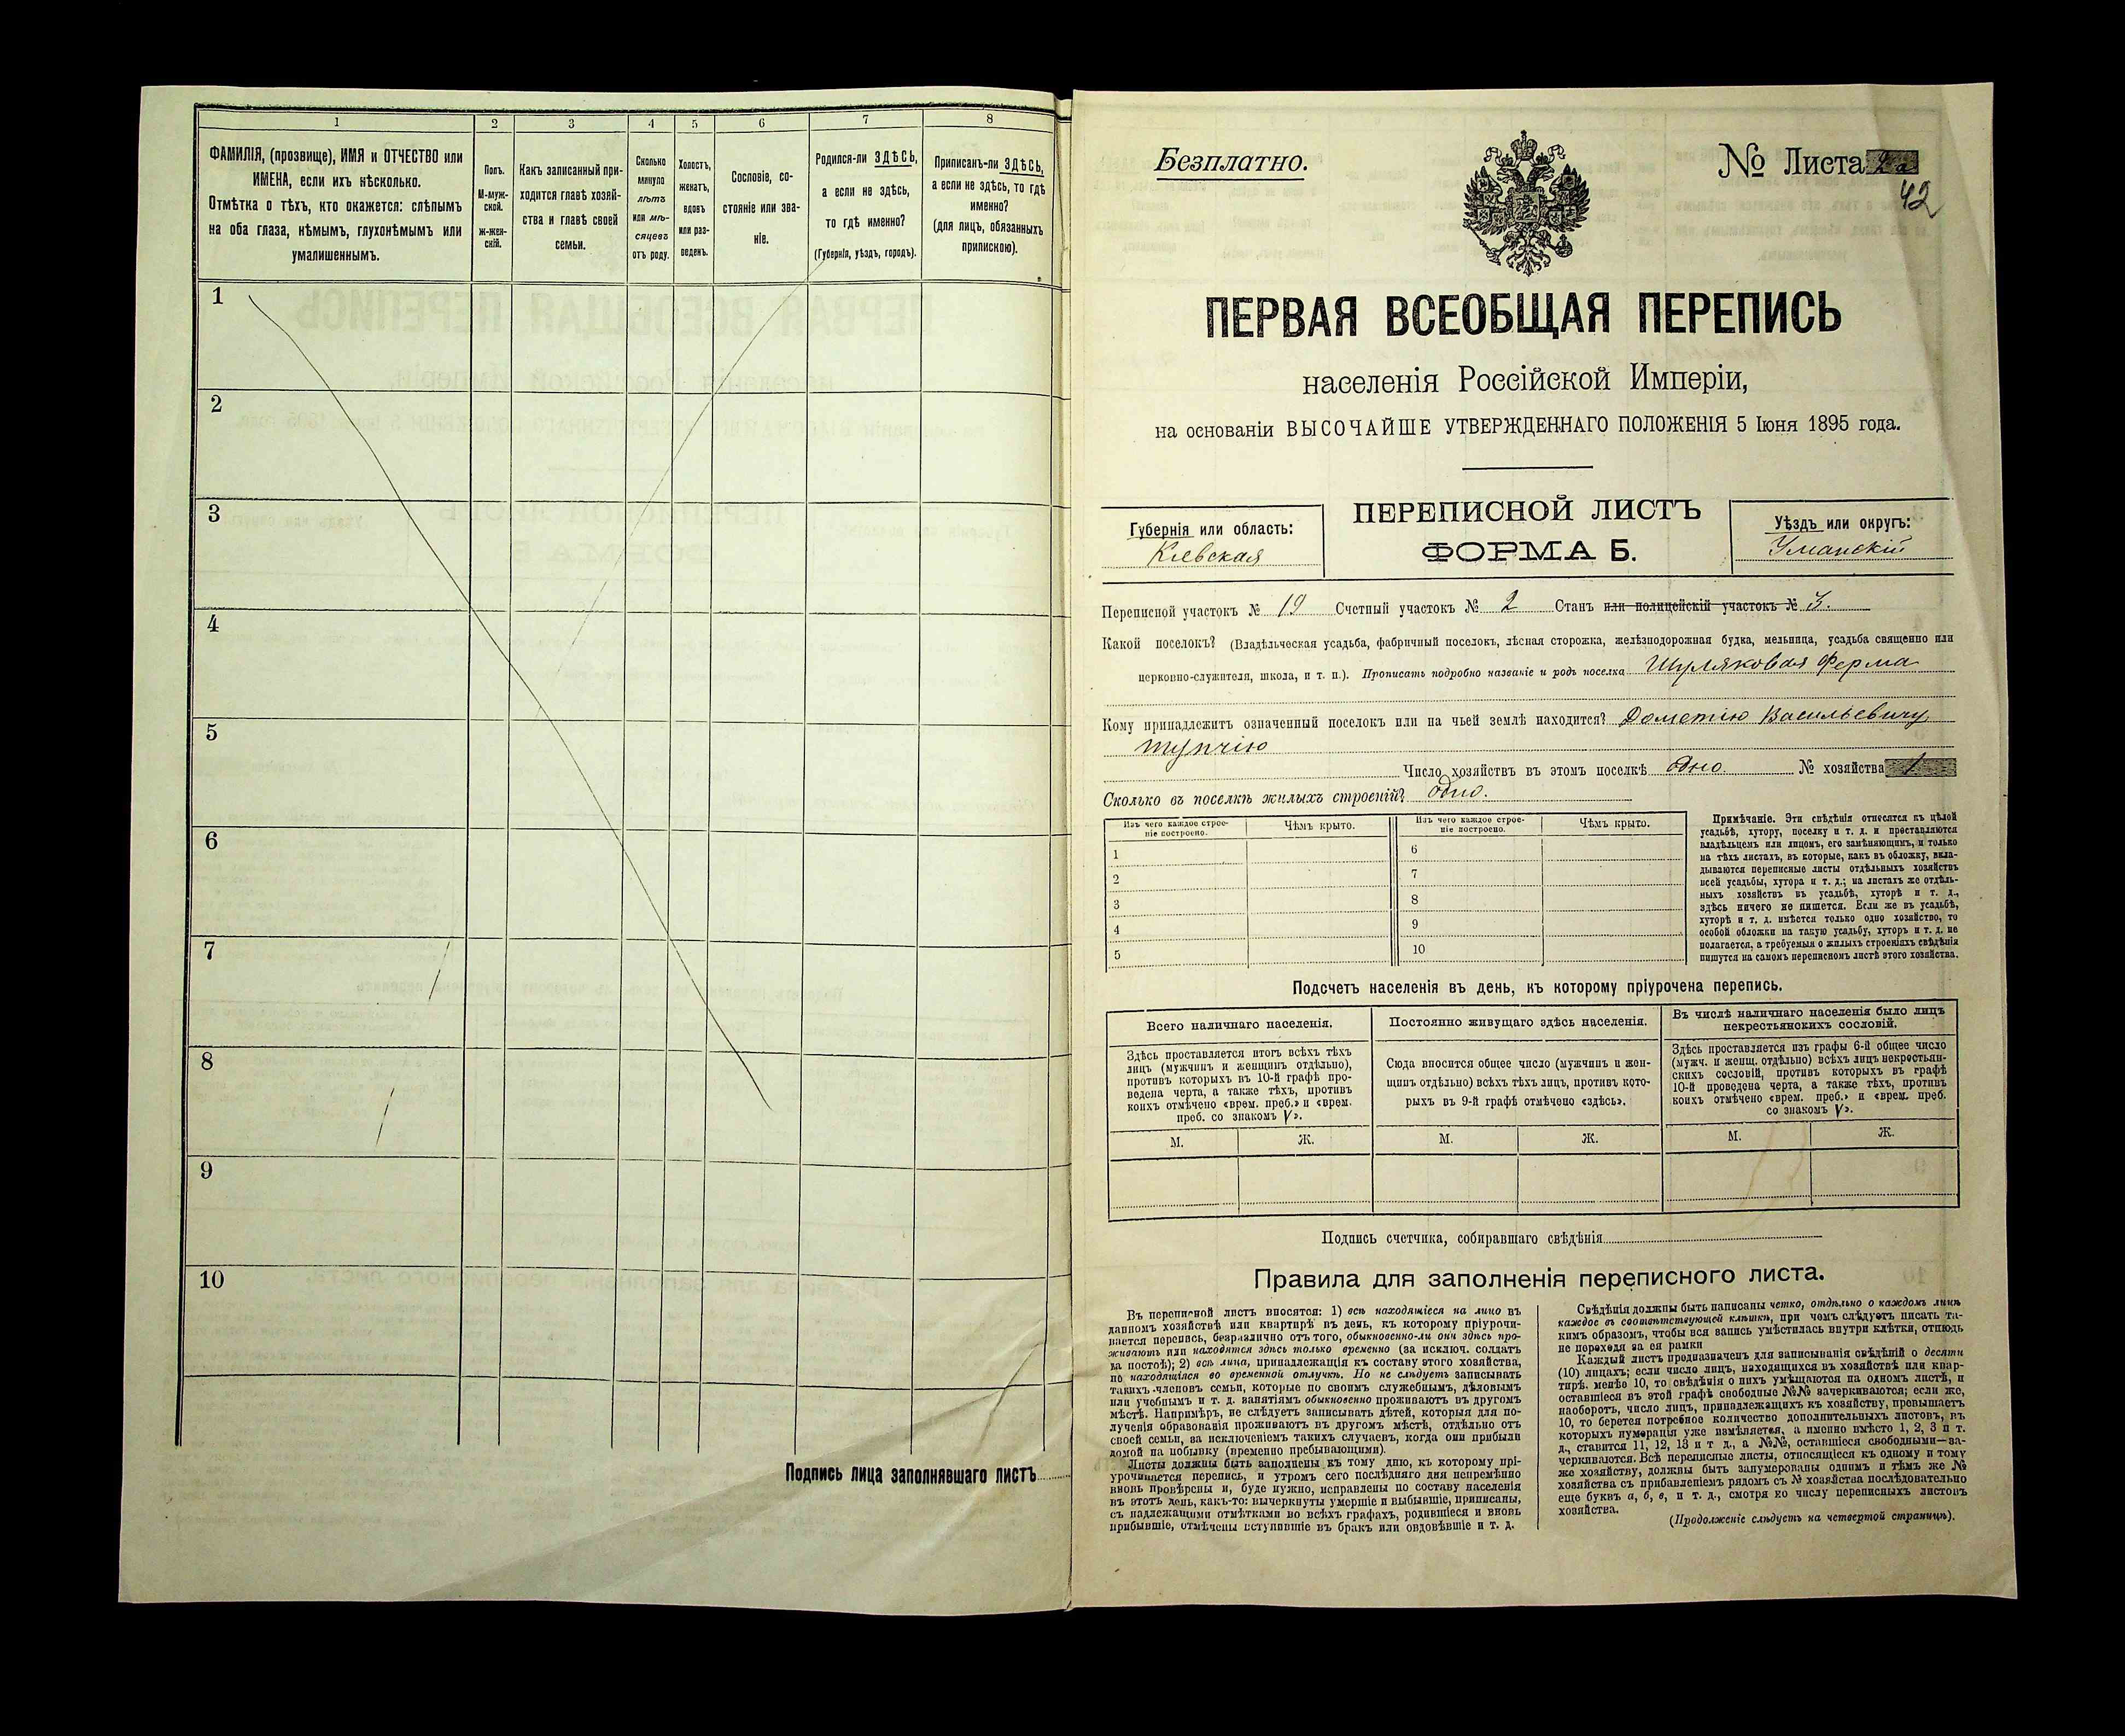 1 2 3 4 5 6 7 8
ФАМИЛІЯ, (прозвище), ИМЯ и ОТЧЕСТВО или
ИМЕНА, если ихъ нѣсколько.
Отмѣтка о тѣхъ, кто окажется: слѣпымъ
на оба глаза, нѣмымъ, глухонѣмымъ или
умалишеннымъ.
Полъ.
М-муж-
ской.
Ж-жен-
скій.
Какъ записанный при-
ходится главѣ хозяй-
ства и главѣ своей
семьи.
Сколько
минуло
лѣтъ
или мѣ-
сяцевъ
отъ роду.
Холостъ,
женатъ,
вдовъ
или раз-
веденъ.
Сословіе, со-
стояніе или зва-
ніе.
Родился-ли ЗДѢСЬ,
а если не здѣсь,
то гдѣ именно?
(Губернія, уѣздъ, городъ).
Приписанъ-ли ЗДѢСЬ,
а если не здѣсь, то гдѣ
именно?
(для лицъ, обязанныхъ
припискою).
1
2
3
4
5
6
7
8
9
10
Подпись лица заполнявшаго листъ
Безплатно.
№ Листа 2а
42
ПЕРВАЯ ВСЕОБЩАЯ ПЕРЕПИСЬ
населенія Россійской Имперіи,
на основаніи ВЫСОЧАЙШЕ УТВЕРЖДЕННАГО ПОЛОЖЕНІЯ 5 Іюня 1895 года.
Губернія или область:
Кіевская
ПЕРЕПИСНОЙ ЛИСТЪ
ФОРМА Б.
Уѣздъ или округъ:
Уманскій
Переписной участокъ № 19 Счетный участокъ № 2 Станъ или полицейскій участокъ № 3.
Какой поселокъ? (Владѣльческая усадьба, фабричный поселокъ, лѣсная сторожка, желѣзнодорожная будка, мельница, усадьба священно или
церковно-служителя, школа, и т. п.). Прописать подробно названіе и родъ поселка Шуляковая Ферма
Кому принадлежитъ означенный поселокъ или на чьей землѣ находится? Дометію Васильевичу
Тупчію
Число хозяйствъ въ этомъ поселкѣ одно № хозяйства 1
Сколько въ поселкѣ жилыхъ строеній? одно.
Изъ чего каждое строе-
ніе построено.
Чѣмъ крыто.
Изъ чего каждое строе-
ніе построено.
Чѣмъ крыто.
1 6
2 7
3 8
4 9
5 10
Примѣчаніе. Эти свѣдѣнія относятся къ цѣлой
усадьбѣ, хутору, поселку и т. д. и проставляются
владѣльцемъ или лицомъ, его замѣняющимъ, и только
на тѣхъ листахъ, въ которые, какъ въ обложку, вкла-
дываются переписные листы отдѣльныхъ хозяйствъ
всей усадьбы, хутора и т. д.; на листахъ же отдѣль-
ныхъ хозяйствъ въ усадьбѣ, хуторѣ и т. д.,
здѣсь ничего не пишется. Если же въ усадьбѣ,
хуторѣ и т. д. имѣется только одно хозяйство, то
особой обложки на такую усадьбу, хуторъ и т. д. не
полагается, а требуемыя о жилыхъ строеніяхъ свѣдѣнія
пишутся на самомъ переписномъ листѣ этого хозяйства.
Подсчетъ населенія въ день, къ которому пріурочена перепись.
Всего наличнаго населенія.
Здѣсь проставляется итогъ всѣхъ тѣхъ
лицъ (мужчинъ и женщинъ отдѣльно),
противъ которыхъ въ 10-й графѣ про-
ведена черта, а также тѣхъ, противъ
коихъ отмѣчено «врем. преб.» и «врем.
преб. со знакомъ V».
М. Ж.
Постоянно живущаго здѣсь населенія.
Сюда вносится общее число (мужчинъ и жен-
щинъ отдѣльно) всѣхъ тѣхъ лицъ, противъ кото-
рыхъ въ 9-й графѣ отмѣчено «здѣсь».
М. Ж.
Въ числѣ наличнаго населенія было лицъ
некрестьянскихъ сословій.
Здѣсь проставляется изъ графы 6-й общее число
(мужч. и женщ. отдѣльно) всѣхъ лицъ некрестьян-
скихъ сословій, противъ которыхъ въ графѣ
10-й проведена черта, а также тѣхъ, противъ
коихъ отмѣчено «врем. преб.» и «врем. преб.
со знакомъ V».
М. Ж.
Подпись счетчика, собиравшаго свѣдѣнія
Правила для заполненія переписного листа.
Въ переписной листъ вносятся: 1) всѣ находящіеся на лицо въ
данномъ хозяйствѣ или квартирѣ въ день, къ которому пріурочи-
вается перепись, безразлично отъ того, обыкновенно-ли они здѣсь про-
живаютъ или находятся здѣсь только временно (за исключ. солдатъ
на постоѣ); 2) всѣ лица, принадлежащія къ составу этого хозяйства,
но находящіяся во временной отлучкѣ. Но не слѣдуетъ записывать
такихъ членовъ семьи, которые по своимъ служебнымъ, дѣловымъ
или учебнымъ и т. д. занятіямъ обыкновенно проживаютъ въ другомъ
мѣстѣ. Напримѣръ, не слѣдуетъ записывать дѣтей, которыя для по-
лученія образованія проживаютъ въ другомъ мѣстѣ, отдѣльно отъ
своей семьи, за исключеніемъ такихъ случаевъ, когда они прибыли
домой на побывку (временно пребывающими).
Листы должны быть заполнены къ тому дню, къ которому прі-
урочивается перепись, и утромъ сего послѣдняго дня непремѣнно
вновь провѣрены и, буде нужно, исправлены по составу населенія
въ этотъ день, какъ-то: вычеркнуты умершіе и выбывшіе, приписаны,
съ надлежащими отмѣтками во всѣхъ графахъ, родившіеся и вновь
прибывшіе, отмѣчены вступившіе въ бракъ или овдовѣвшіе и т. д.
Свѣдѣнія должны быть написаны четко, отдѣльно о каждомъ лицѣ
каждое въ соотвѣтствующей клѣткѣ, при чемъ слѣдуетъ писать та-
кимъ образомъ, чтобы вся запись умѣстилась внутри клѣтки, отнюдь
не переходя за ея рамки
Каждый листъ предназначенъ для записыванія свѣдѣній о десяти
(10) лицахъ; если число лицъ, находящихся въ хозяйствѣ или квар-
тирѣ, менѣе 10, то свѣдѣнія о нихъ умѣщаются на одномъ листѣ, и
оставшіеся въ этой графѣ свободные №№ зачеркиваются; если же,
наоборотъ, число лицъ, принадлежащихъ къ хозяйству, превышаетъ
10, то берется потребное количество дополнительныхъ листовъ, въ
которыхъ нумерація уже измѣняется, а именно вмѣсто 1, 2, 3 и т.
д., ставится 11, 12, 13 и т д., а №№, оставшіеся свободными—за-
черкиваются. Всѣ переписные листы, относящіеся къ одному и тому
же хозяйству, должны быть занумерованы однимъ и тѣмъ же №
хозяйства съ прибавленіемъ рядомъ съ № хозяйства послѣдовательно
еще буквъ а, б, в, и т. д., смотря ко числу переписныхъ листовъ
хозяйства.
(Продолженіе слѣдуетъ на четвертой страницѣ).